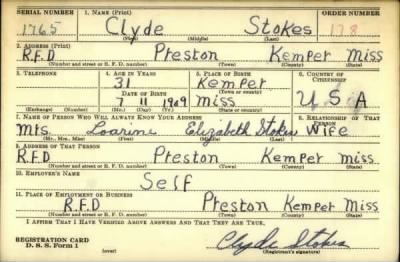 SERIAL NUMBER 1. NAME (Print) ORDER NUMBER
1765 Clyde Stokes 178
(First) (Middle) (Last)
2. ADDRESS (Print)
R.F.D Preston Kemper Miss
(Number and street or R. F. D. number) (Town) (County) (State)
3. TELEPHONE 4. AGE IN YEARS 5. PLACE OF BIRTH 6. COUNTRY OF CITIZENSHIP
31 Kemper
(Town or county)
DATE OF BIRTH
7 11 1909 Miss U S A
(Exchange) (Number) (Mo.) (Day) (Yr.) (State or country)
7. NAME OF PERSON WHO WILL ALWAYS KNOW YOUR ADDRESS 8. RELATIONSHIP OF THAT PERSON
Mrs. Elizabeth Stokes Wife
(Mr., Mrs., Miss) (First) (Middle) (Last)
9. ADDRESS OF THAT PERSON
R.F.D Preston Kemper Miss
(Number and street or R. F. D. number) (Town) (County) (State)
10. EMPLOYER'S NAME
Self
11. PLACE OF EMPLOYMENT OR BUSINESS
R.F.D Preston Kemper Miss
(Number and street or R. F. D. number) (Town) (County) (State)
I AFFIRM THAT I HAVE VERIFIED ABOVE ANSWERS AND THAT THEY ARE TRUE.
REGISTRATION CARD
D. S. S. Form 1 (over) Clyde Stokes
(Registrant's signature)